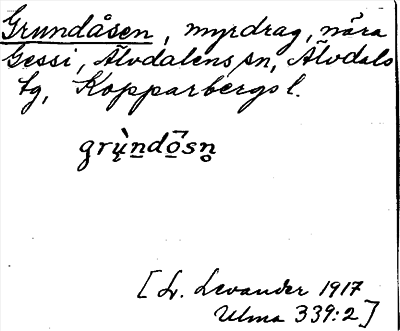 Grundåsen, myrdrag, nära
Gessi, Älvdalens sn, Älvdals
tg, Kopparbergs l.
grų̀n̲dō̲sn̥
[L. Levander 1917
Ulma 339:2]